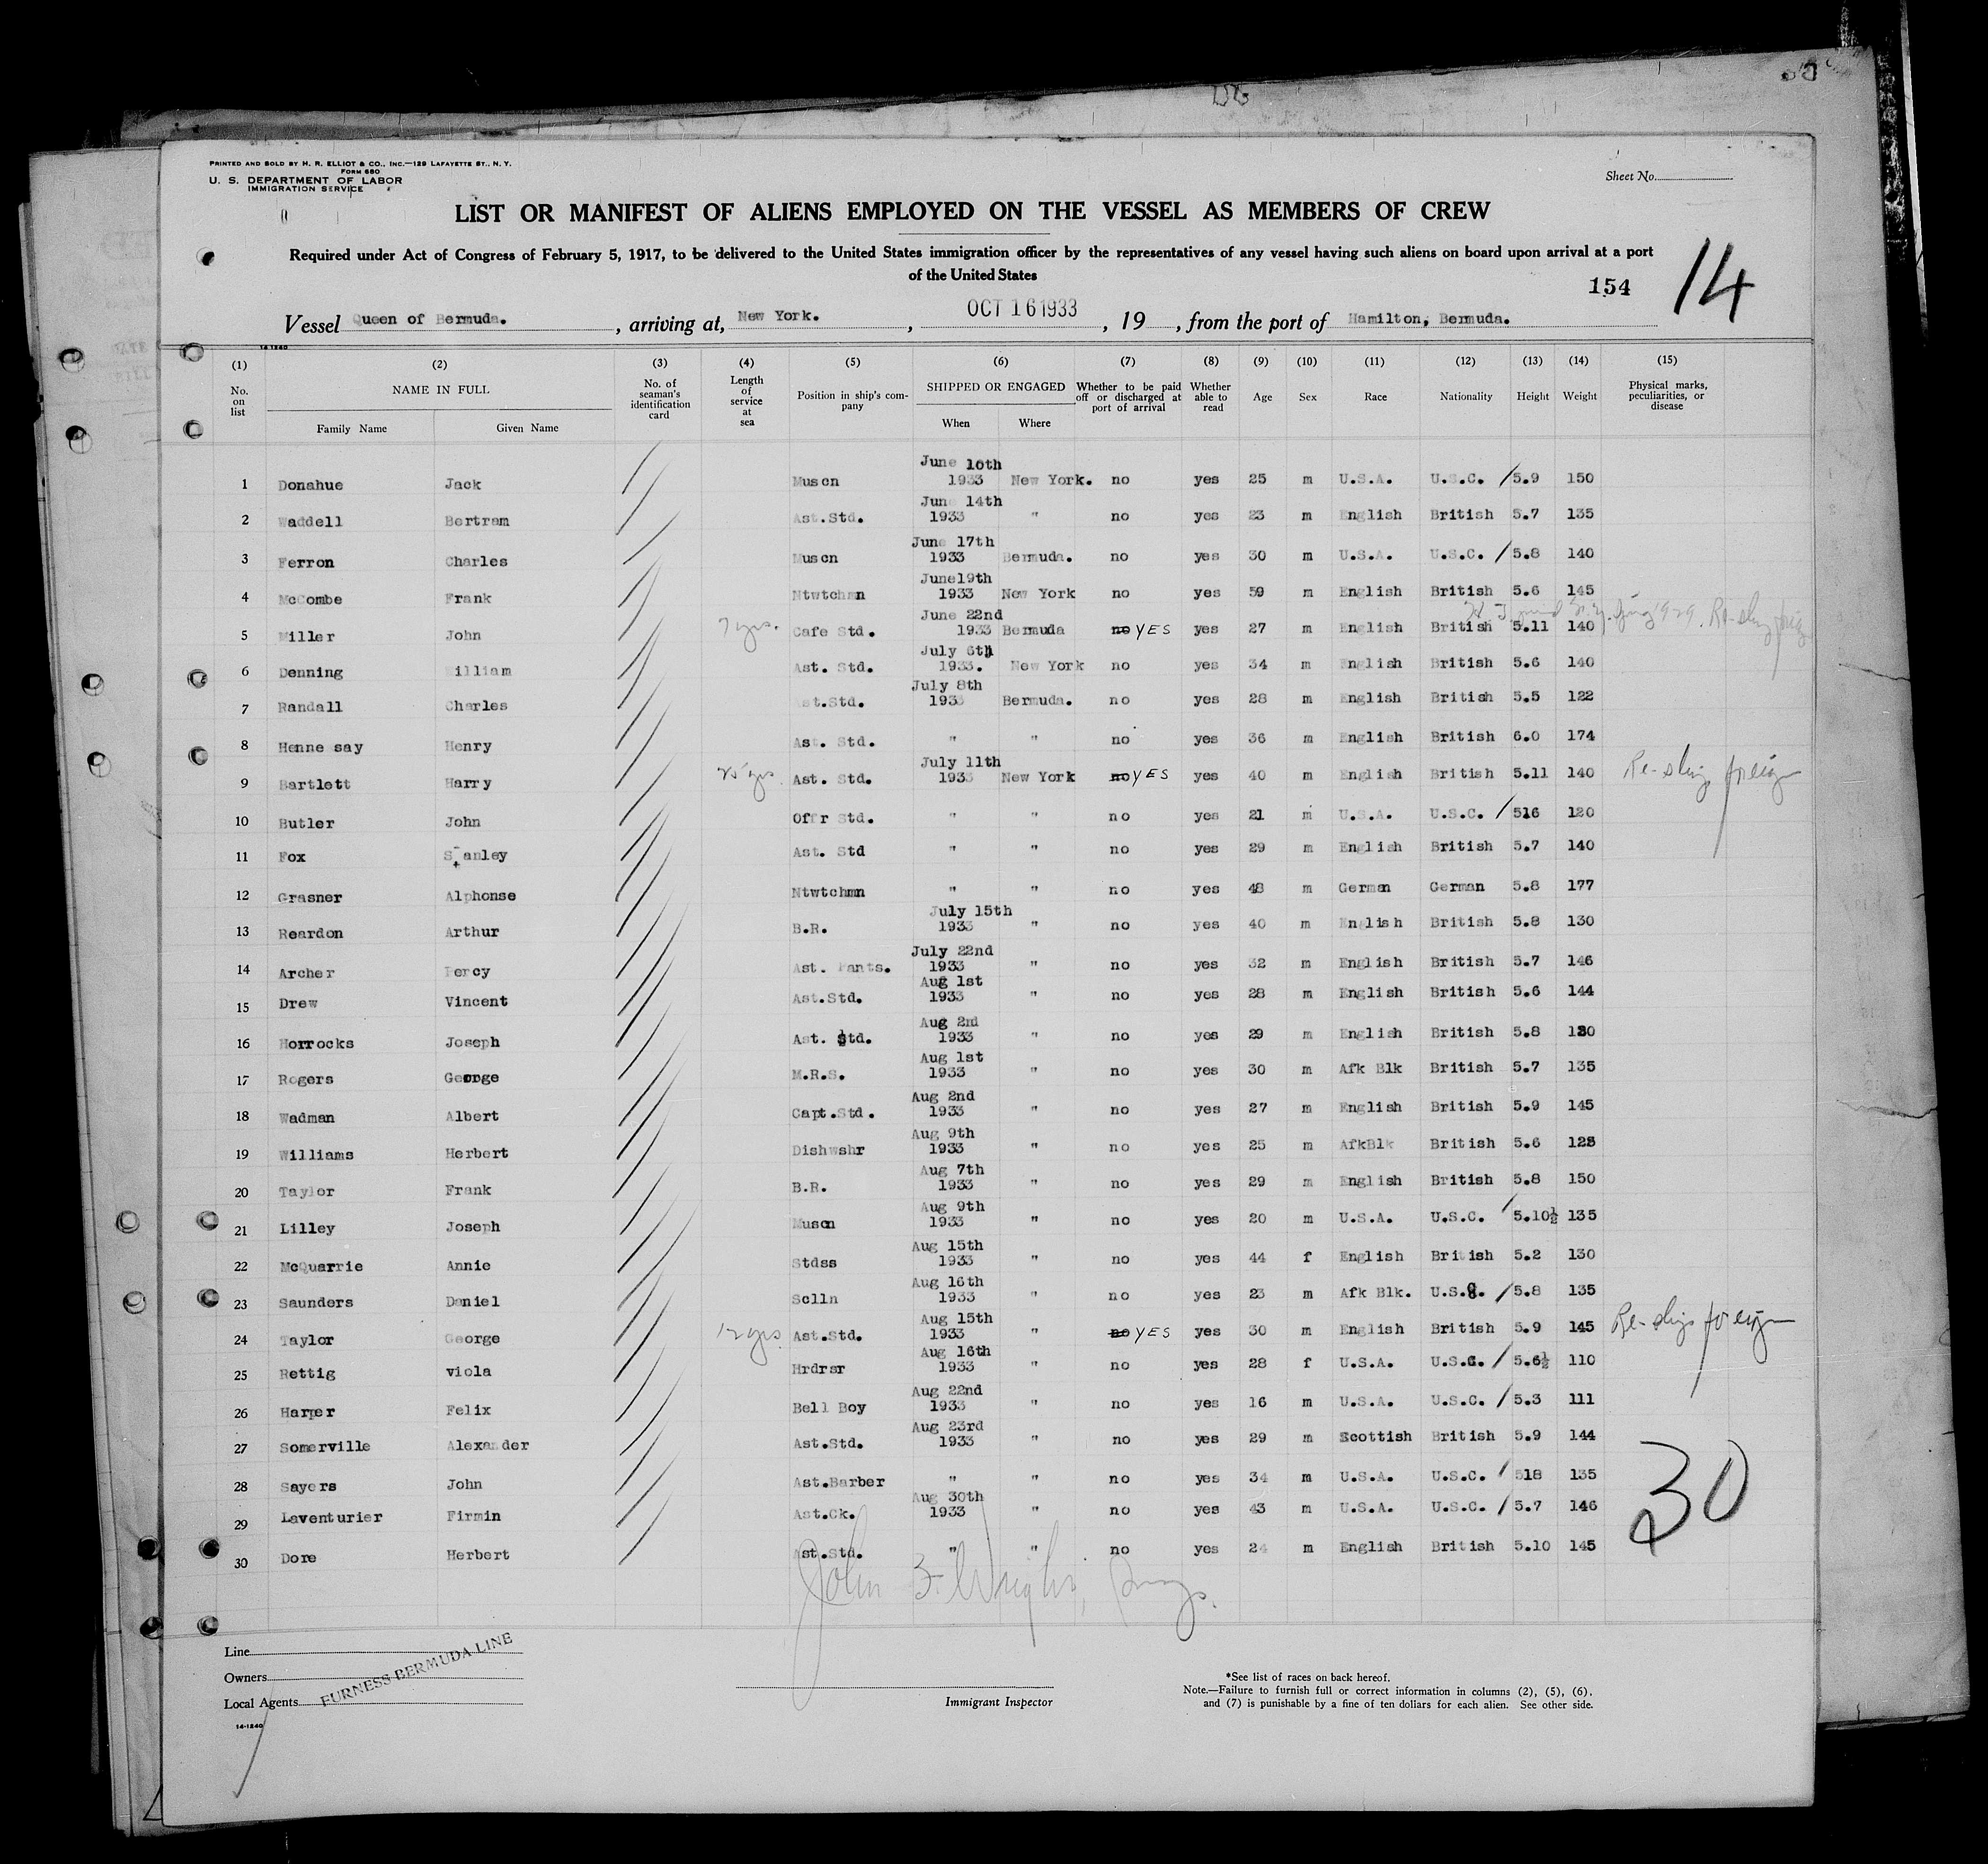 PRINTED AND SOLD BY H. R. ELLIOT & CO., INC.—129 LAFAYETTE ST., N. Y.
FORM 680
U. S. DEPARTMENT OF LABOR
IMMIGRATION SERVICE
Sheet No.
LIST OR MANIFEST OF ALIENS EMPLOYED ON THE VESSEL AS MEMBERS OF CREW
Required under Act of Congress of February 5, 1917, to be delivered to the United States immigration officer by the representatives of any vessel having such aliens on board upon arrival at a port
of the United States
154 14
Vessel Queen of Bermuda. , arriving at, New York. , OCT 16 1933 , 19 , from the port of Hamilton, Bermuda.
14-1240
(1) (2) (3) (4) (5) (6) (7) (8) (9) (10) (11) (12) (13) (14) (15)
No. on list NAME IN FULL Family Name Given Name No. of seaman's identification card Length of service at sea Position in ship's company SHIPPED OR ENGAGED When Where Whether to be paid off or discharged at port of arrival Whether able to read Age Sex Race Nationality Height Weight Physical marks, peculiarities, or disease
1 Donahue Jack Muscn June 10th 1933 New York. no yes 25 m U.S.A. U.S.C. / 5.9 150
2 Waddell Bertram Ast.Std. June 14th 1933 " no yes 23 m English British 5.7 135
3 Ferron Charles Muscn June 17th 1933 Bermuda. no yes 30 m U.S.A. U.S.C. / 5.8 140
4 McCombe Frank Ntwtchmn June19th 1933 New York no yes 59 m English British 5.6 145
5 Miller John 7 yrs. Cafe Std. June 22nd 1933 Bermuda no YES yes 27 m English British 5.11 140
6 Denning William Ast. Std. July 6th 1933. New York no yes 34 m English British 5.6 140
7 Randall Charles Ast.Std. July 8th 1933 Bermuda. no yes 28 m English British 5.5 122
8 Henne say Henry Ast. Std. " " no yes 36 m English British 6.0 174
9 Bartlett Harry 25 yrs. Ast. Std. July 11th 1933 New York no YES yes 40 m English British 5.11 140 Re-shipg foreign
10 Butler John Offr Std. " " no yes 21 m U.S.A. U.S.C. / 516 120
11 Fox Stanley Ast. Std " " no yes 29 m English British 5.7 140
12 Grasner Alphonse Ntwtchmn " " no yes 48 m German German 5.8 177
13 Reardon Arthur B.R. July 15th 1933 " no yes 40 m English British 5.8 130
14 Archer Percy Ast. Pants. July 22nd 1933 " no yes 32 m English British 5.7 146
15 Drew Vincent Ast.Std. Aug 1st 1933 " no yes 28 m English British 5.6 144
16 Horrocks Joseph Ast. Std. Aug 2nd 1933 " no yes 29 m English British 5.8
17 Rogers George M.R.S. Aug 1st 1933 " no yes 30 m Afk Blk British 5.7 135
18 Wadman Albert Capt.Std. Aug 2nd 1933 " no yes 27 m English British 5.9 145
19 Williams Herbert Dishwshr Aug 9th 1933 " no yes 25 m AfkBlk British 5.6
20 Taylor Frank B.R. Aug 7th 1933 " no yes 29 m English British 5.8 150
21 Lilley Joseph Muscn Aug 9th 1933 " no yes 20 m U.S.A. U.S.C. / 5.10½ 135
22 McQuarrie Annie Stdss Aug 15th 1933 " no yes 44 f English British 5.2 130
23 Saunders Daniel Sclln Aug 16th 1933 " no yes 23 m Afk Blk. U.S.C. / 5.8 135
24 Taylor George 12 yrs Ast.Std. Aug 15th 1933 " no YES yes 30 m English British 5.9 145 Re-shipg foreign
25 Rettig viola Hrdrsr Aug 16th 1933 " no yes 28 f U.S.A. U.S.C. / 5.6½ 110
26 Harper Felix Bell Boy Aug 22nd 1933 " no yes 16 m U.S.A. U.S.C. / 5.3 111
27 Somerville Alexander Ast.Std. Aug 23rd 1933 " no yes 29 m Scottish British 5.9 144
28 Sayers John Ast.Barber " " no yes 34 m U.S.A. U.S.C. / 518 135
29 Laventurier Firmin Ast.Ck. Aug 30th 1933 " no yes 43 m U.S.A. U.S.C. / 5.7 146
30 Dore Herbert Ast.Std. " " no yes 24 m English British 5.10 145
30
Line
Owners
Local Agents FURNESS BERMUDA LINE
14-1240
Immigrant Inspector
*See list of races on back hereof.
Note.—Failure to furnish full or correct information in columns (2), (5), (6),
and (7) is punishable by a fine of ten dollars for each alien. See other side.